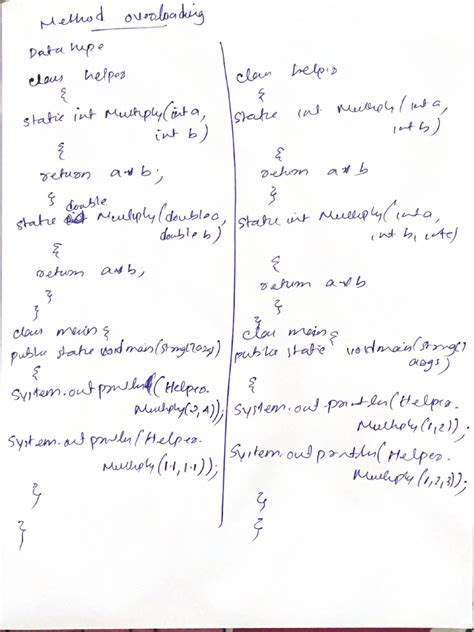 Method overloading
Data type
class helper
{
static int Multiply(int a,
int b)
{
return a*b;
}
static double Multiply(double a,
double b)
{
return a*b;
}
}
class main {
public static void main(string[] args)
{
System.out println((Helper.
Multiply(2,4));
System.out println(Helper.
Multiply(1.1,1.1));
}
}
class helper
{
static int Multiply(int a,
int b)
{
return a*b
}
static int Multiply(int a,
int b, int c)
{
return a*b
}
}
class main {
public static void main(string[]
args)
{
System.out.println(Helper.
Multiply(1,2));
System.out.println(Helper.
Multiply(1,2,3));
}
}